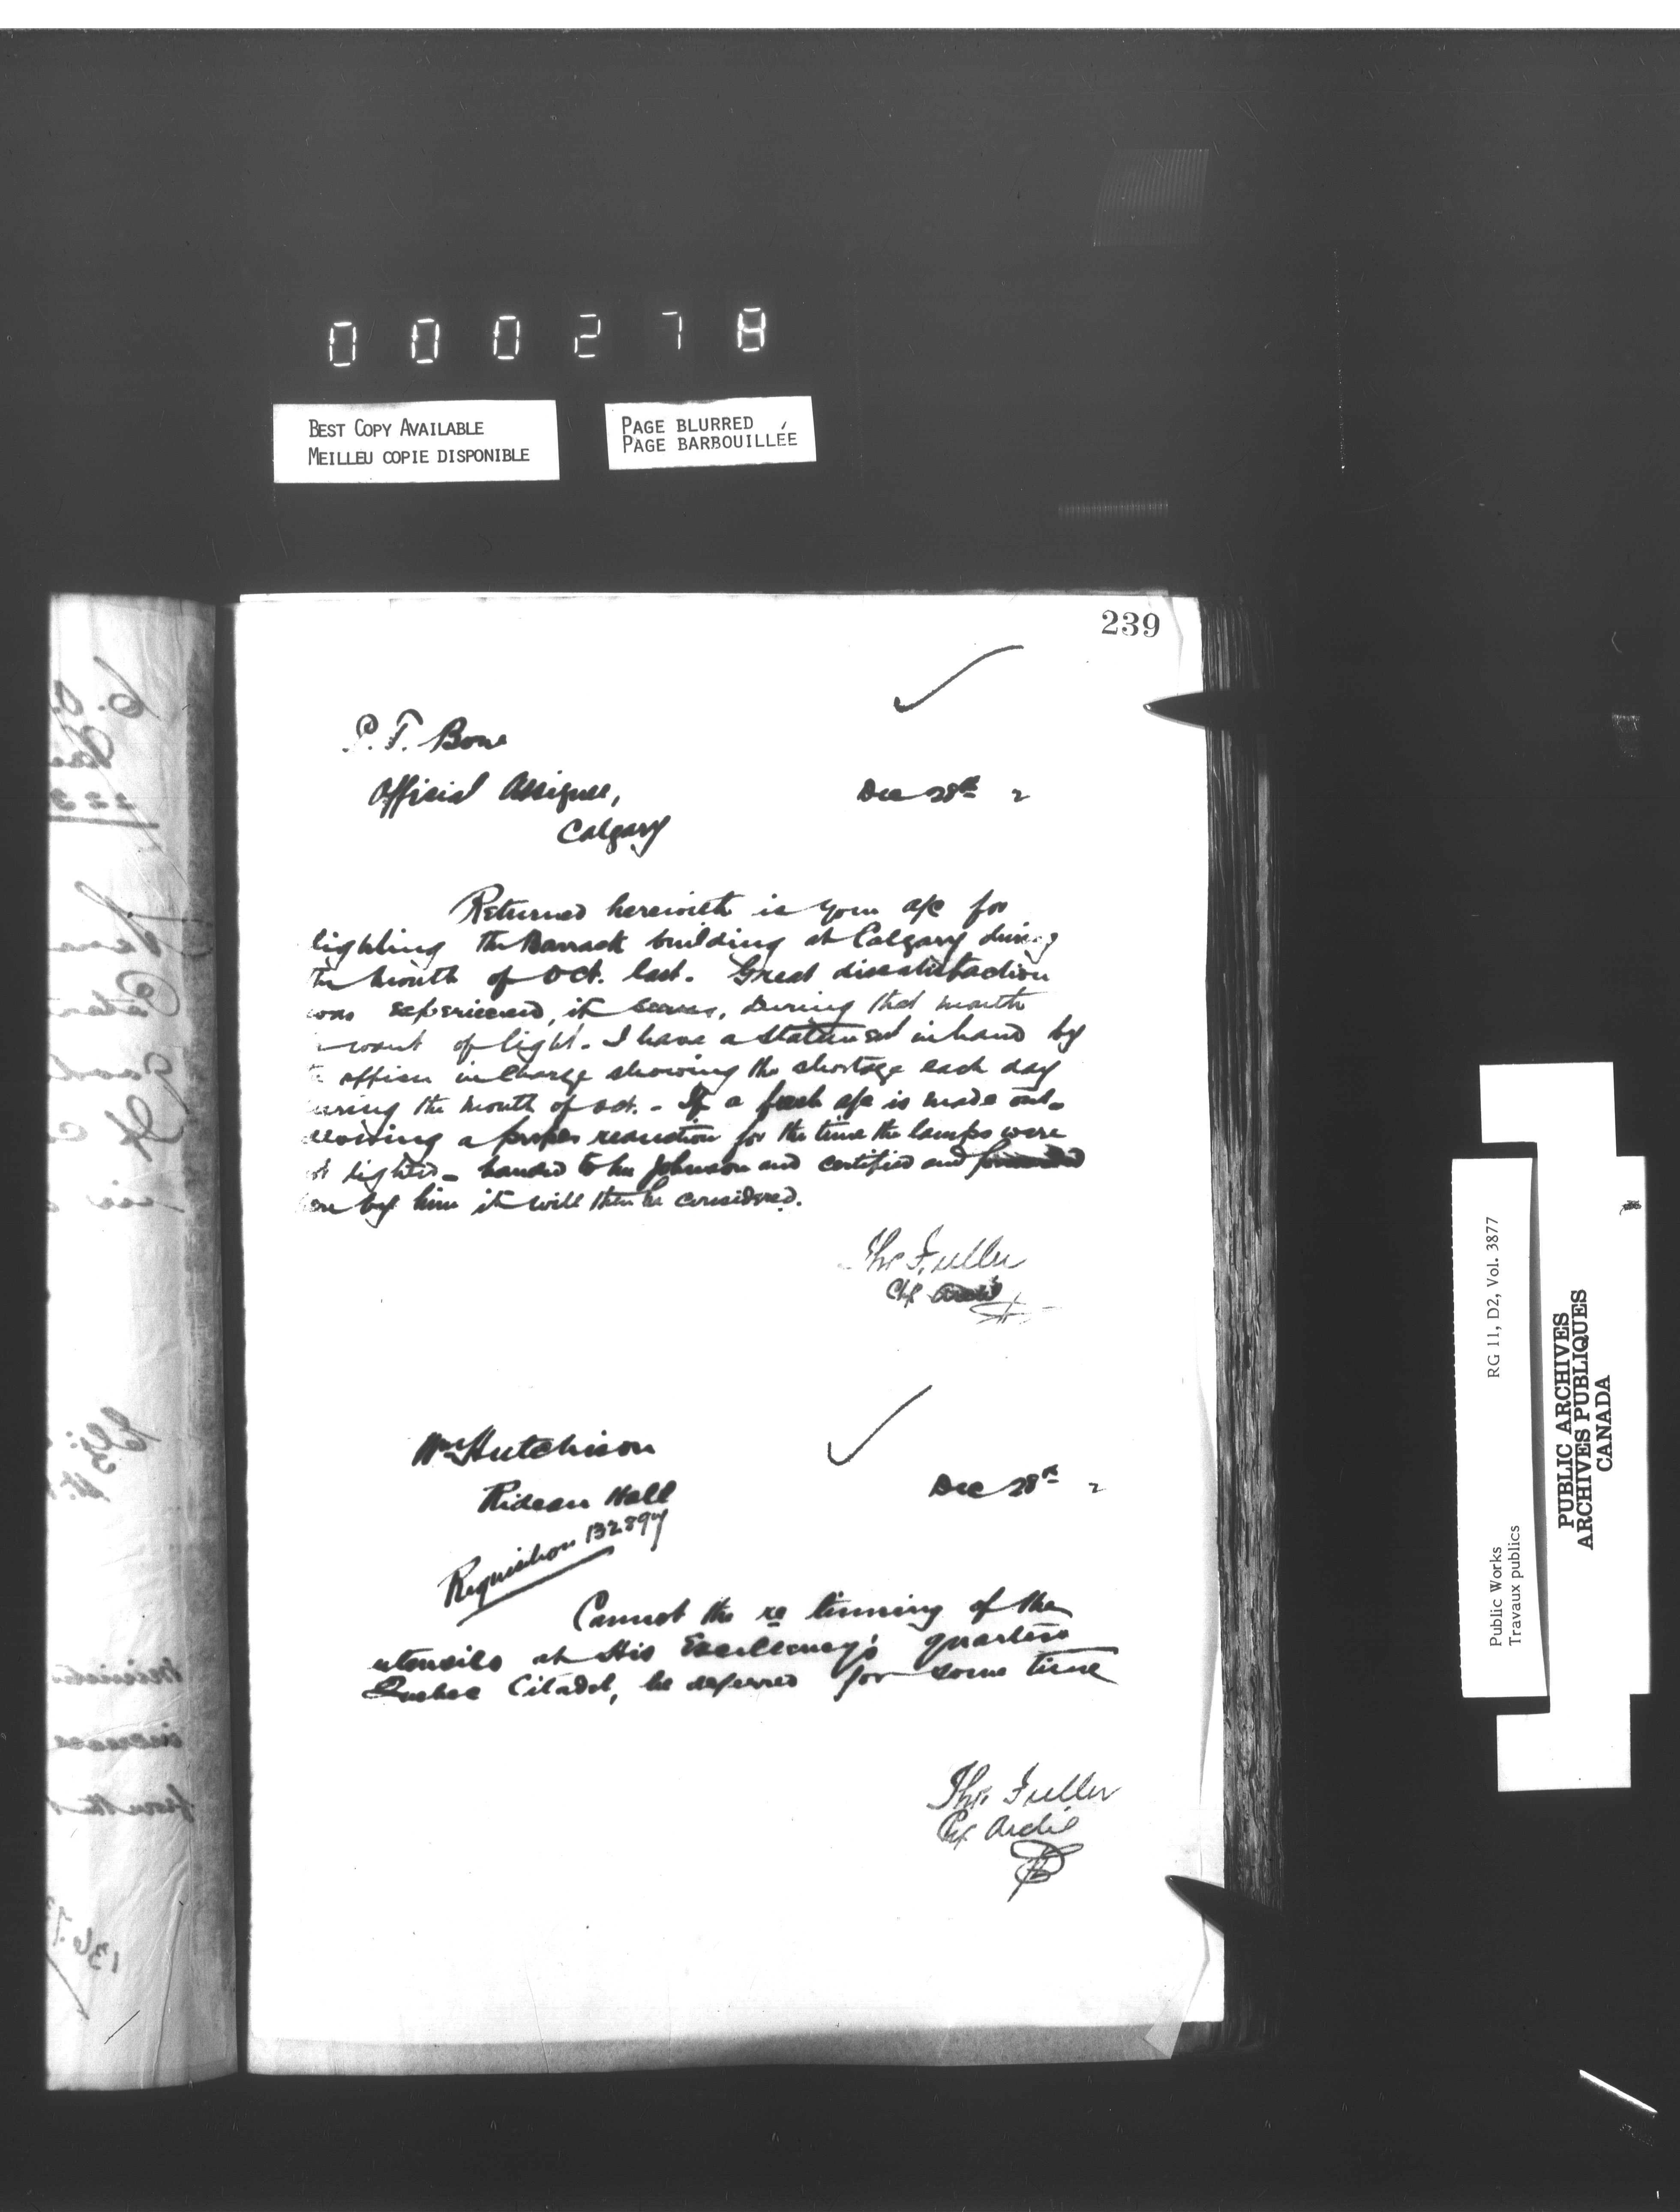 000278
BEST COPY AVAILABLE
MEILLEU COPIE DISPONIBLE
PAGE BLURRED
PAGE BARBOUILLÉE
239
P. T. Bone
Official Assignee,
Dec 28th 2
Calgary
Returned herewith is your a/c for
lighting the Barrack building at Calgary during
the month of Oct. last. Great dissatisfaction
was experienced, it seems, during that month
want of light. I have a statement in hand by
officer in charge showing the shortage each day
during the month of Oct. - If a fresh a/c is made out
allowing a proper reduction for the time the lamps were
not lighted - handed to Mr Johnson and certified and forwarded
here by him it will then be considered.
Thos Fuller
Chf Archt
Wm Hutchison
Rideau Hall
Dec 28th 2
Requisition 132897
Cannot the re tinning of the
utensils at His Excellency's quarters
Quebec Citadel, be deferred for some time
Thos Fuller
Chf Archt
Public Works
Travaux publics
RG 11, D2, Vol. 3877
PUBLIC ARCHIVES
ARCHIVES PUBLIQUES
CANADA